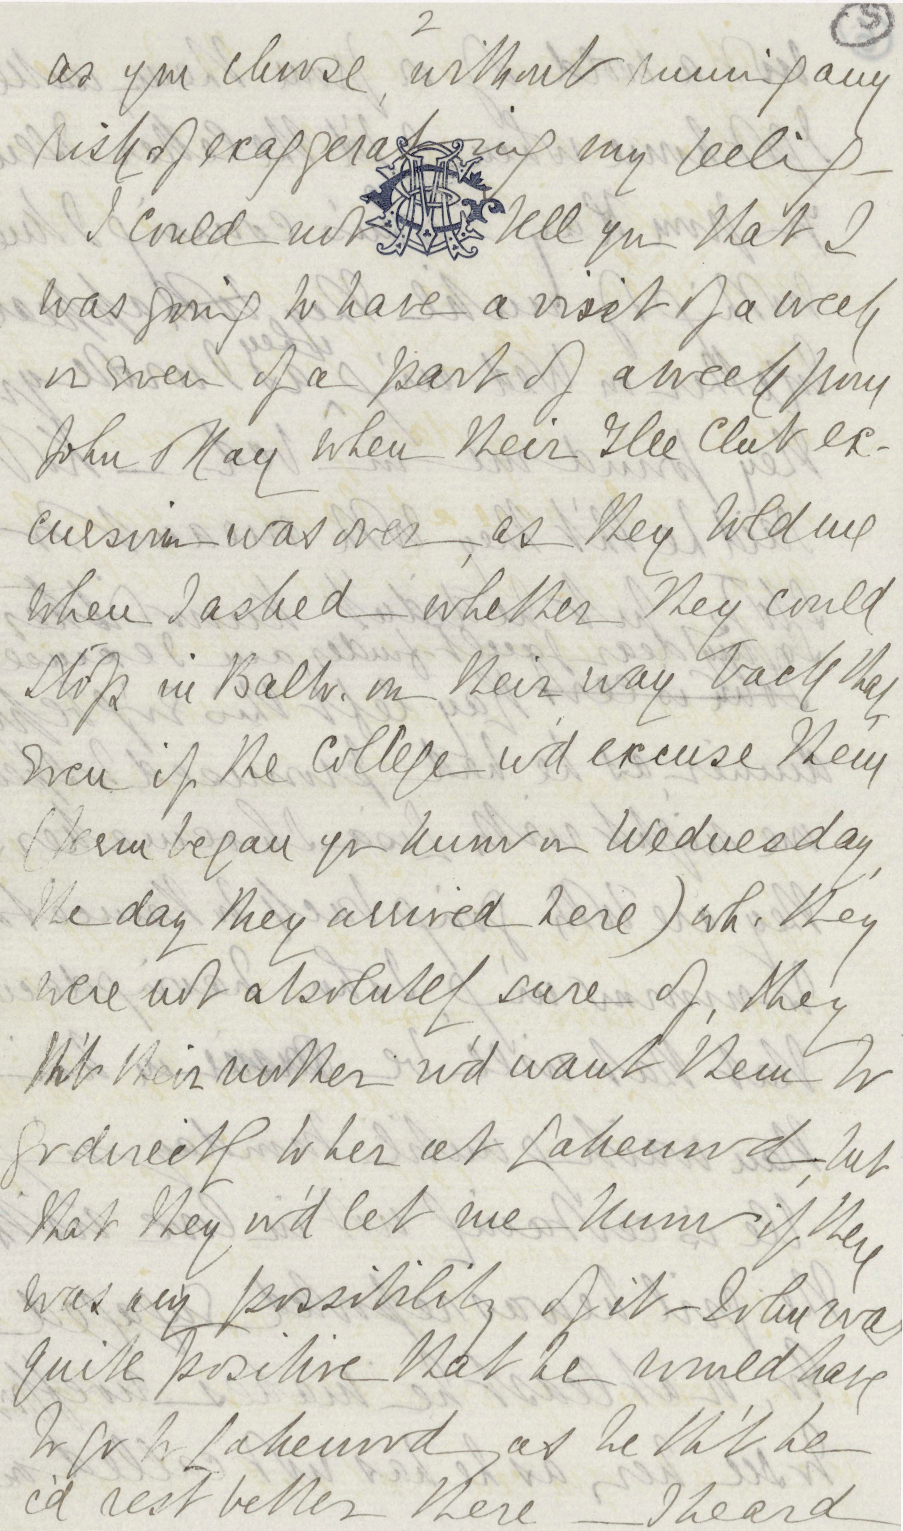 2
5
as you choose, without running any
risk of exaggerating my feeling –
I could not tell you that I
was going to have a visit of a week
or even of a part of a week from
John & Kay when their Glee Club ex-
cursion was over, as they told me
when I asked whether they could
stop in Balto. on their way back that
even if the College w'd excuse them
(term began you know on Wednesday,
the day they arrived here) wh. they
were not absolutely sure of, they
th't their mother w'd want them to
go directly to her at Lakewood, but
that they w'd let me know if there
was any possibility of it – John was
quite positive that he would have
to go to Lakewood as he th't he
c'd rest better there – I heard